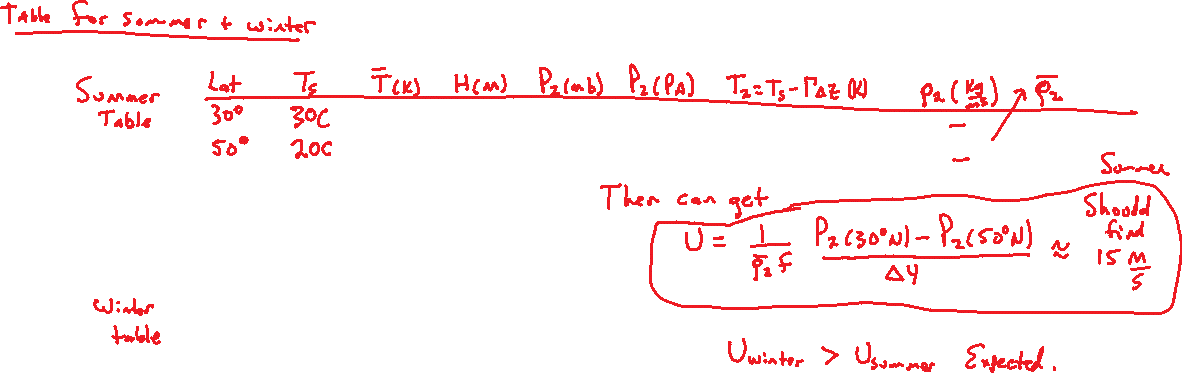 Table for summer + winter
Summer Table
Lat Ts T̄(K) H(m) P₂(mb) P₂(PA) T₂=Ts-ΓΔz (K) ρ₂(kg/m³) ρ̄₂
30° 30C –
50° 20C –
Then can get
Summer
U = 1/(ρ̄₂f) (P₂(30°N) - P₂(50°N))/Δy ≈ Should find 15 m/s
Winter
table
Uwinter > Usummer Expected.